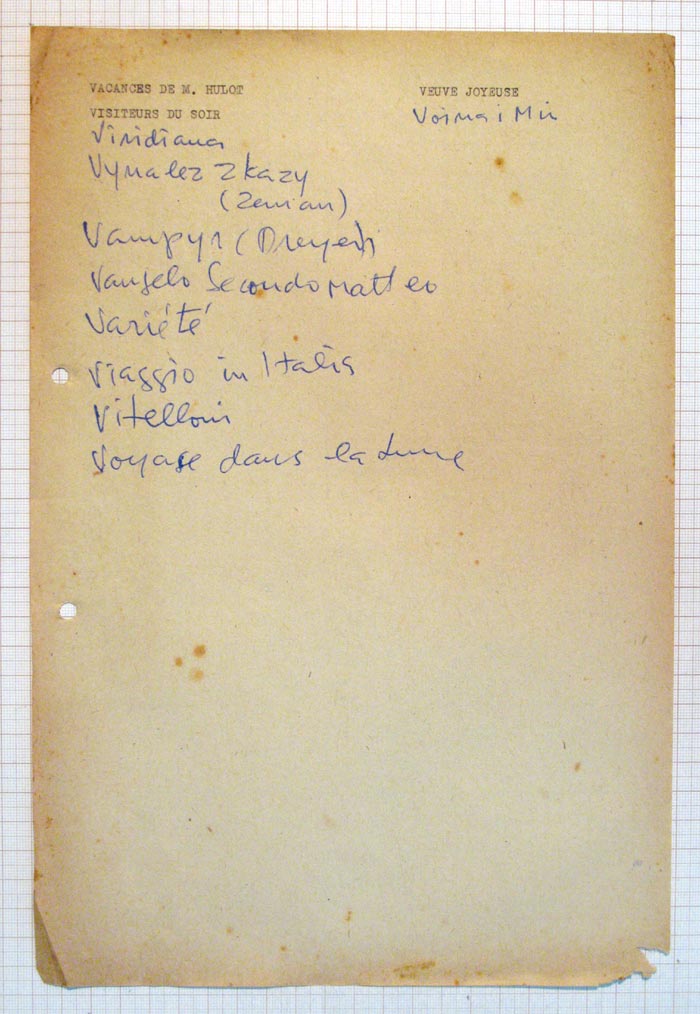 VACANCES DE M. HULOT
VISITEURS DU SOIR
Viridiana
Vynalez Zkazy
(Zeman)
Vampyr (Dreyer)
Vangelo Secondo Matteo
Variété
Viaggio in Italia
Vitelloni
Voyage dans la Lune
VEUVE JOYEUSE
Voina i Mir